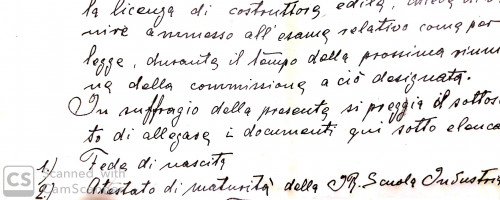 la licenza di costruttore edile,
nire ammesso all'esame relativo come per
legge, durante il tempo della prossima riunio
ne della commissione a ciò designata.
In suffragio della presente si preggia il sottoscri
to di allegare i documenti qui sotto elenca
1.) Fede di nascita
2.) Atestato di maturità della IR. Scuola Industria
CS Scanned with
CamScanner